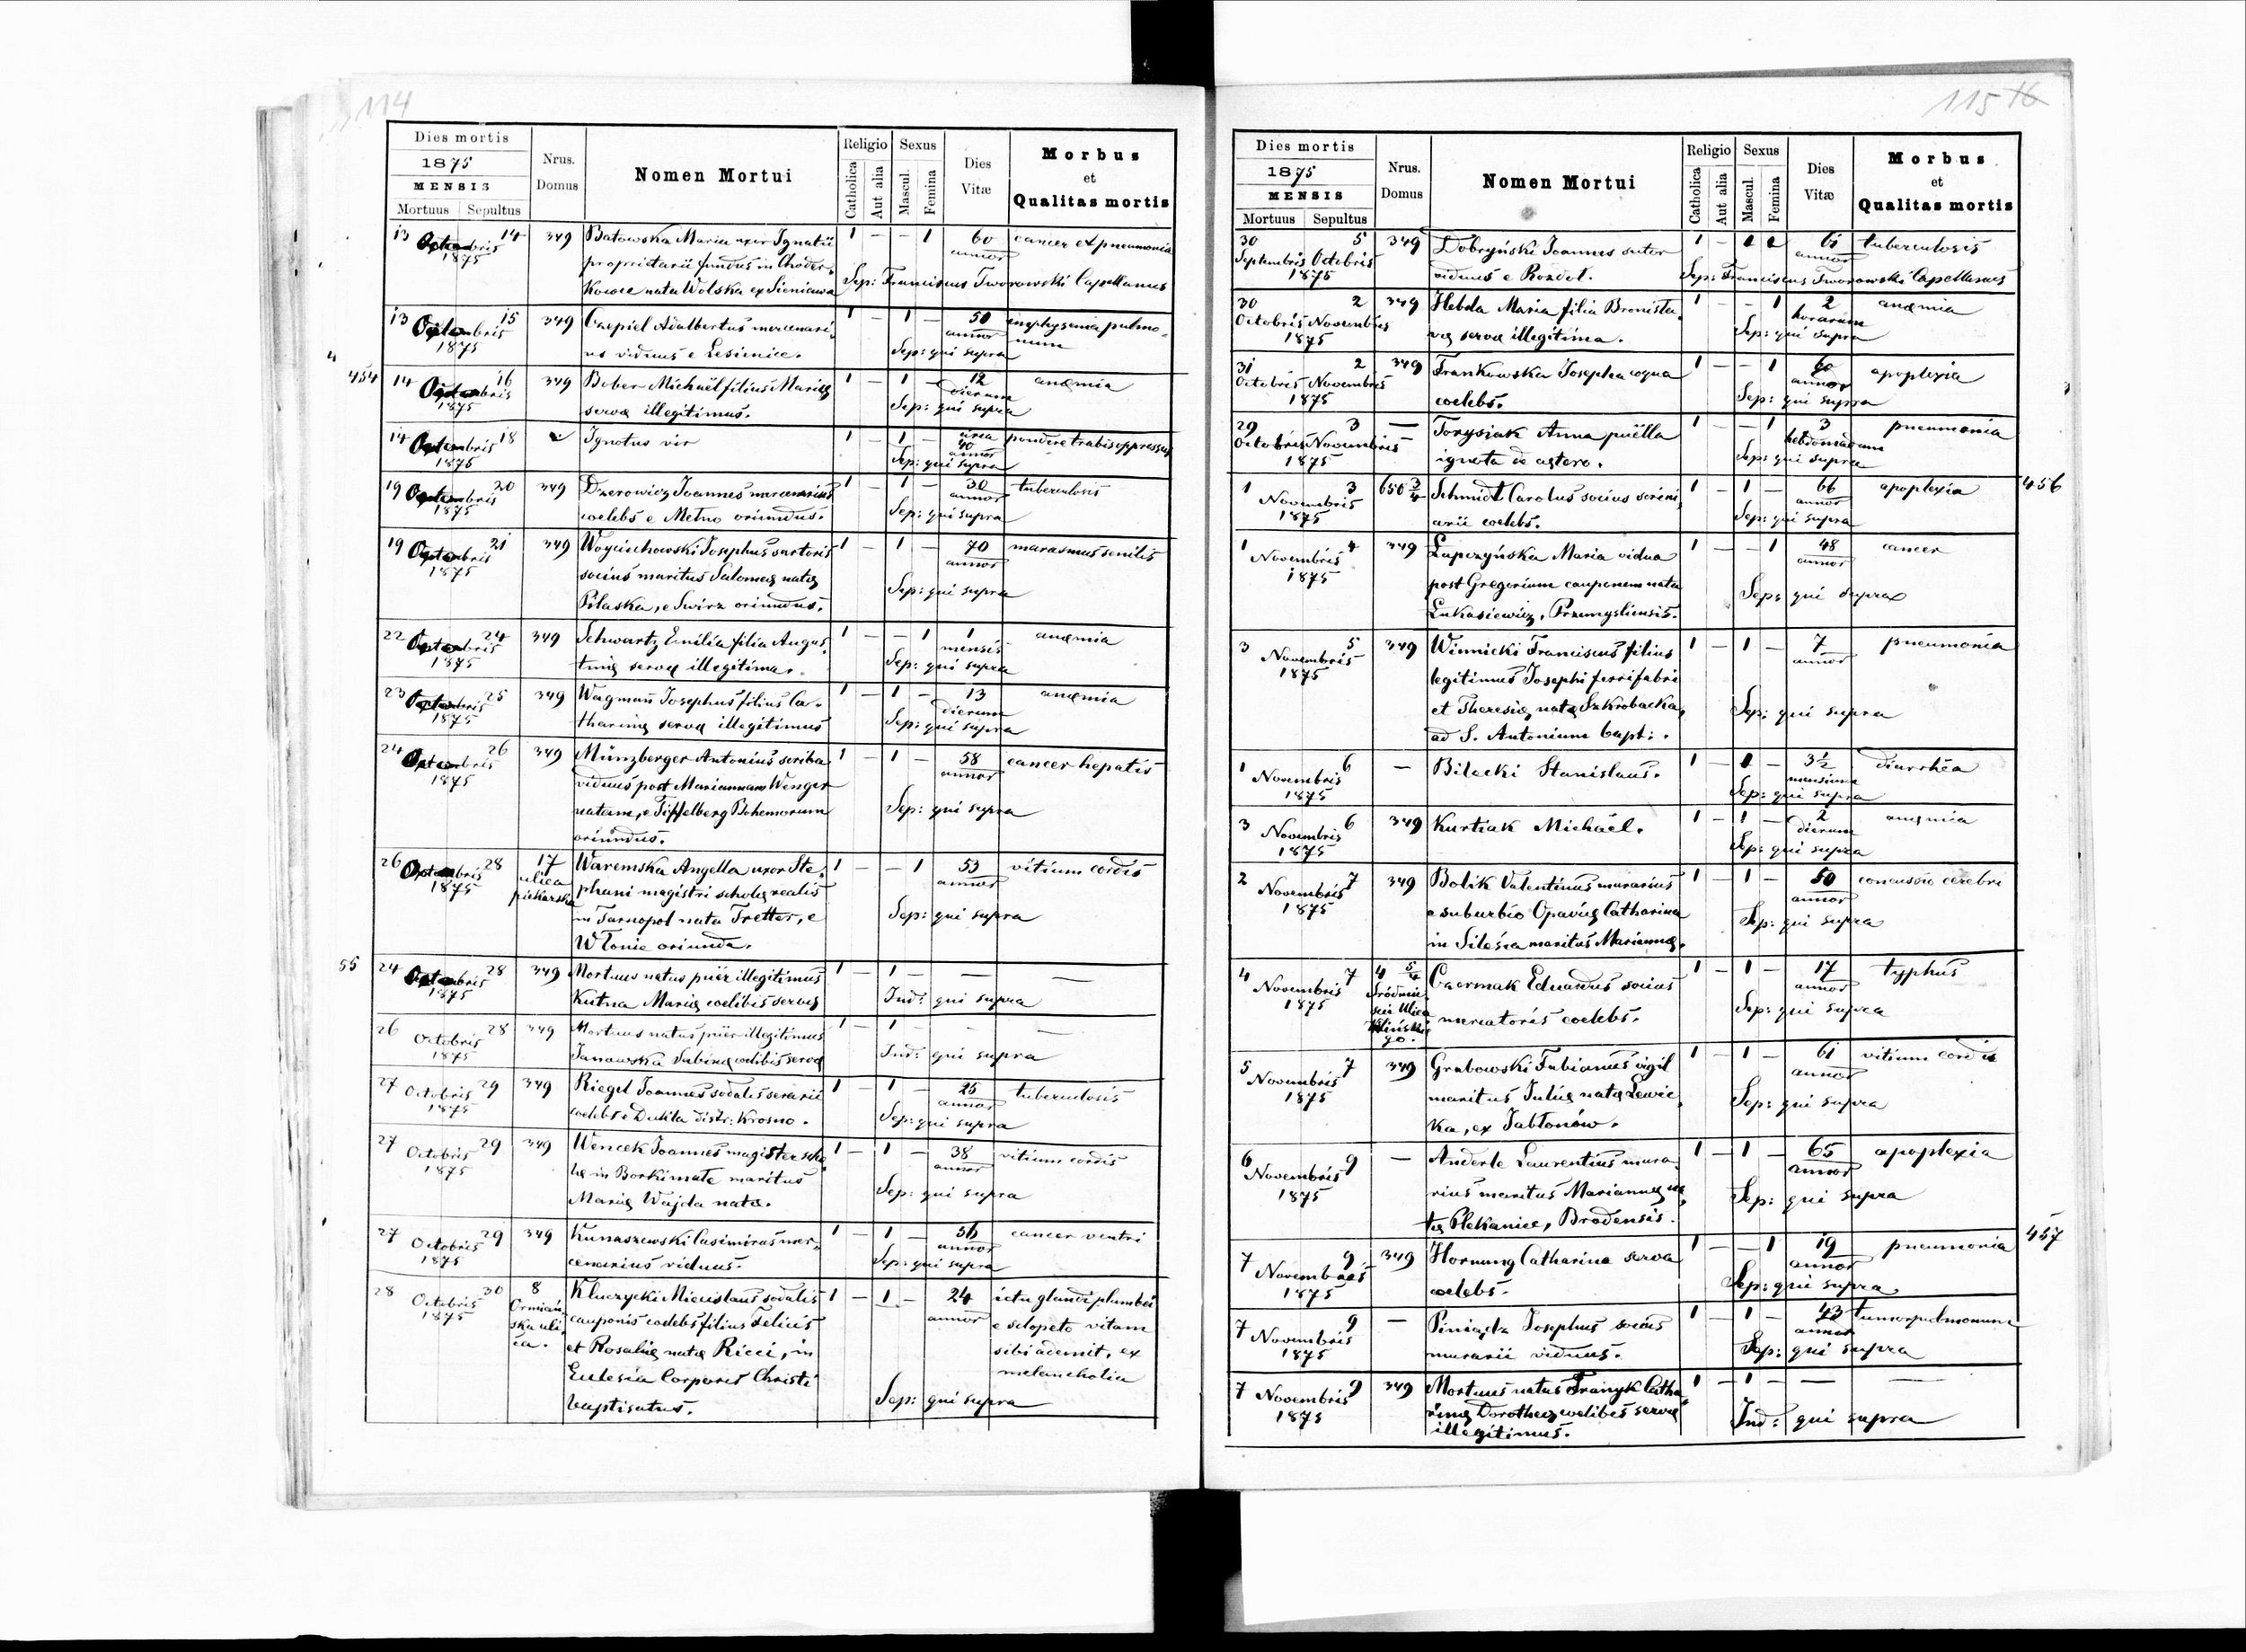 114
Dies mortis
1875
MENSIS
Mortuus Sepultus
Nrus. Domus
Nomen Mortui
Religio
Catholica
Aut alia
Sexus
Mascul.
Femina
Dies Vitæ
Morbus
et
Qualitas mortis
13 Octobris 14 349 Batowska Maria uxor Ignatii 1 — — 1 60 cancer et pneumonia
1875 proprietarii fundus in Choder annor
kowce nata Wolska ex Sieniawa Sep: Franciscus Tworowski Capellanus
13 Octobris 15 349 Czepiel Adalbertus mercenari 1 — 1 — 50 emphysema pulmo
1875 us viduus e Lesienice. annor num
Sep: qui supra
454 14 Octobris 16 349 Bober Michaël filius Mariæ 1 — 1 — 12 anæmia
1875 servæ illegitimus. dierum
Sep: qui supra
14 Octobris 18 Ignotus vir 1 — 1 — circa 40 pondere trabis oppressus
1875 annor
Sep: qui supra
19 Octobris 20 349 Dzerowicz Joannes mercenarius 1 — 1 — 30 tuberculosis
1875 coelebs e Metno oriundus. annor
Sep: qui supra
19 Octobris 21 349 Woyciechowski Josephus sartoris 1 — 1 — 70 marasmus senilis
1875 socius maritus Salomeæ natæ annor
Pilaska, e Swirz oriundus. Sep: qui supra
22 Octobris 24 349 Schwartz Emilia filia Augus 1 — — 1 1 anæmia
1875 tinæ servæ illegitima. mensis
Sep: qui supra
23 Octobris 25 349 Wagman Josephus filius Ca 1 — 1 — 13 anæmia
1875 tharinæ servæ illegitimus dierum
Sep: qui supra
24 Octobris 26 349 Münzberger Antonius scriba 1 — 1 — 58 cancer hepatis
1875 viduus post Mariannam Wenger annor
natam, e Tiffelberg Bohemorum Sep: qui supra
oriundus.
26 Octobris 28 17 Waremska Angella uxor Ste 1 — — 1 53 vitium cordis
1875 ulica piekarska phani magistri scholæ realis annor
in Tarnopol nata Tretter, e Sep: qui supra
Wlonie oriunda.
55 24 Octobris 28 349 Mortuus natus puër illegitimus 1 — 1 — — —
1875 Kutna Mariæ coelibis servæ Ind: qui supra
26 Octobris 28 349 Mortuus natus puër illegitimus 1 — 1 — — —
1875 Janowska Sabinæ coelibis servæ Ind: qui supra
27 Octobris 29 349 Riegel Joannes sodalis serarii 1 — 1 — 25 tuberculosis
1875 coelebs e Dukla distr: Krosno. annor
Sep: qui supra
27 Octobris 29 349 Wencek Joannes magister scho 1 — 1 — 38 vitium cordis
1875 læ in Borkimate maritus annor
Mariæ Wajda natæ. Sep: qui supra
27 Octobris 29 349 Kunaszewski Casimirus mer 1 — 1 — 56 cancer ventri
1875 cenarius viduus. annor
Sep: qui supra
28 Octobris 30 8 Kluczycki Miecislaus sodalis 1 — 1 — 24 ictu glandi plumbei
1875 Ormiań cauponis coelebs filius Felicis annor e sclopeto vitam
ska uli et Rosaliæ natæ Ricci, in sibi ademit, ex
ca. Eclesia Corporis Christi melancholia
baptisatus. Sep: qui supra
115 16
Dies mortis
1875
MENSIS
Mortuus Sepultus
Nrus. Domus
Nomen Mortui
Religio
Catholica
Aut alia
Sexus
Mascul.
Femina
Dies Vitæ
Morbus
et
Qualitas mortis
30 5 349 Dobryński Joannes sutor 1 — 61 tuberculosis
Septembris Octobris viduus e Rozdol. annor
1875 Sep: Franciscus Tworowski Capellanus
30 2 349 Hebda Maria filia Bronisla 1 — — 1 2 anæmia
Octobris Novembris væ servæ illegitima. horarum
1875 Sep: qui supra
31 2 349 Frankowska Josepha coqua 1 — — 1 60 apoplexia
Octobris Novembris coelebs. annor
1875 Sep: qui supra
29 3 — Torysiak Anna puëlla 1 — — 1 3 pneumonia
Octobris Novembris ignota de cætero. hebdomadarum
1875 Sep: qui supra
1 Novembris 3 650 3/4 Schmidt Carolus socius scrini 1 — 1 — 66 apoplexia 456
1875 arii coelebs. annor
Sep: qui supra
1 Novembris 4 349 Łapczyńska Maria vidua 1 — — 1 48 cancer
1875 post Gregorium cauponem nata annor
Lukasiewicz, Przemysliensis. Sep: qui supra
3 Novembris 5 349 Winnicki Franciscus filius 1 — 1 — 7 pneumonia
1875 legitimus Josephi ferrifabri annor
et Theresiæ natæ Szkrobacka, Sep: qui supra
ad S. Antonium bapt:.
1 Novembris 6 — Bilecki Stanislaus. 1 — 1 — 3½ diarrhéa
1875 mensium
Sep: qui supra
3 Novembris 6 349 Kurtiak Michaël. 1 — 1 — 2 anæmia
1875 dierum
Sep: qui supra
2 Novembris 7 349 Bolik Valentinus murarius 1 — 1 — 50 concussio cerebri
1875 e suburbio Opaviæ Catharina annor
in Silesia maritus Mariannæ. Sep: qui supra
4 Novembris 7 4 5/4 Czermak Eduardus socius 1 — 1 — 17 typhus
1875 mercatoris coelebs. annor
Sep: qui supra
5 Novembris 7 349 Grabowski Fabianus vigil 1 — 1 — 61 vitium cordis
1875 maritus Juliæ natæ Lewic annor
ka, ex Jabłonów. Sep: qui supra
6 Novembris 9 — Anderle Laurentius mura 1 — 1 — 65 apoplexia
1875 rius maritus Mariannæ na annor
tæ Plekaniec, Brodensis. Sep: qui supra
7 Novembris 9 349 Hornung Catharina serva 1 — — 1 19 pneumonia 457
1875 coelebs. annor
Sep: qui supra
7 Novembris 9 — Piniądz Josephus socius 1 — 1 — 43 tumor pulmonum
1875 murarii viduus. annor
Sep: qui supra
7 Novembris 9 349 Mortuus natus Franyk Catha 1 — 1 — — —
1875 rinæ Dorotheæ coelibis servæ Ind: qui supra
illegitimus.